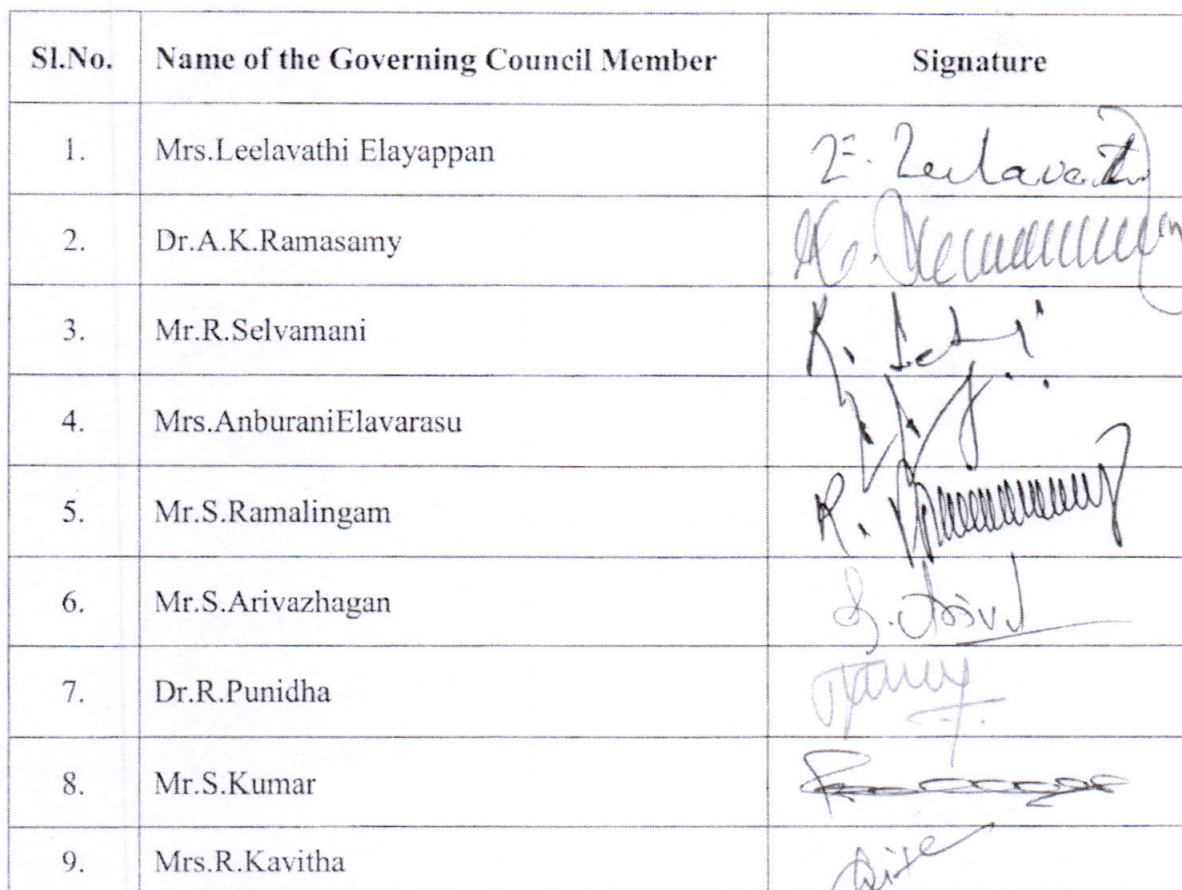 Sl.No. Name of the Governing Council Member Signature
1. Mrs.Leelavathi Elayappan E. Leelavathi
2. Dr.A.K.Ramasamy
3. Mr.R.Selvamani
4. Mrs.AnburaniElavarasu
5. Mr.S.Ramalingam
6. Mr.S.Arivazhagan
7. Dr.R.Punidha
8. Mr.S.Kumar
9. Mrs.R.Kavitha